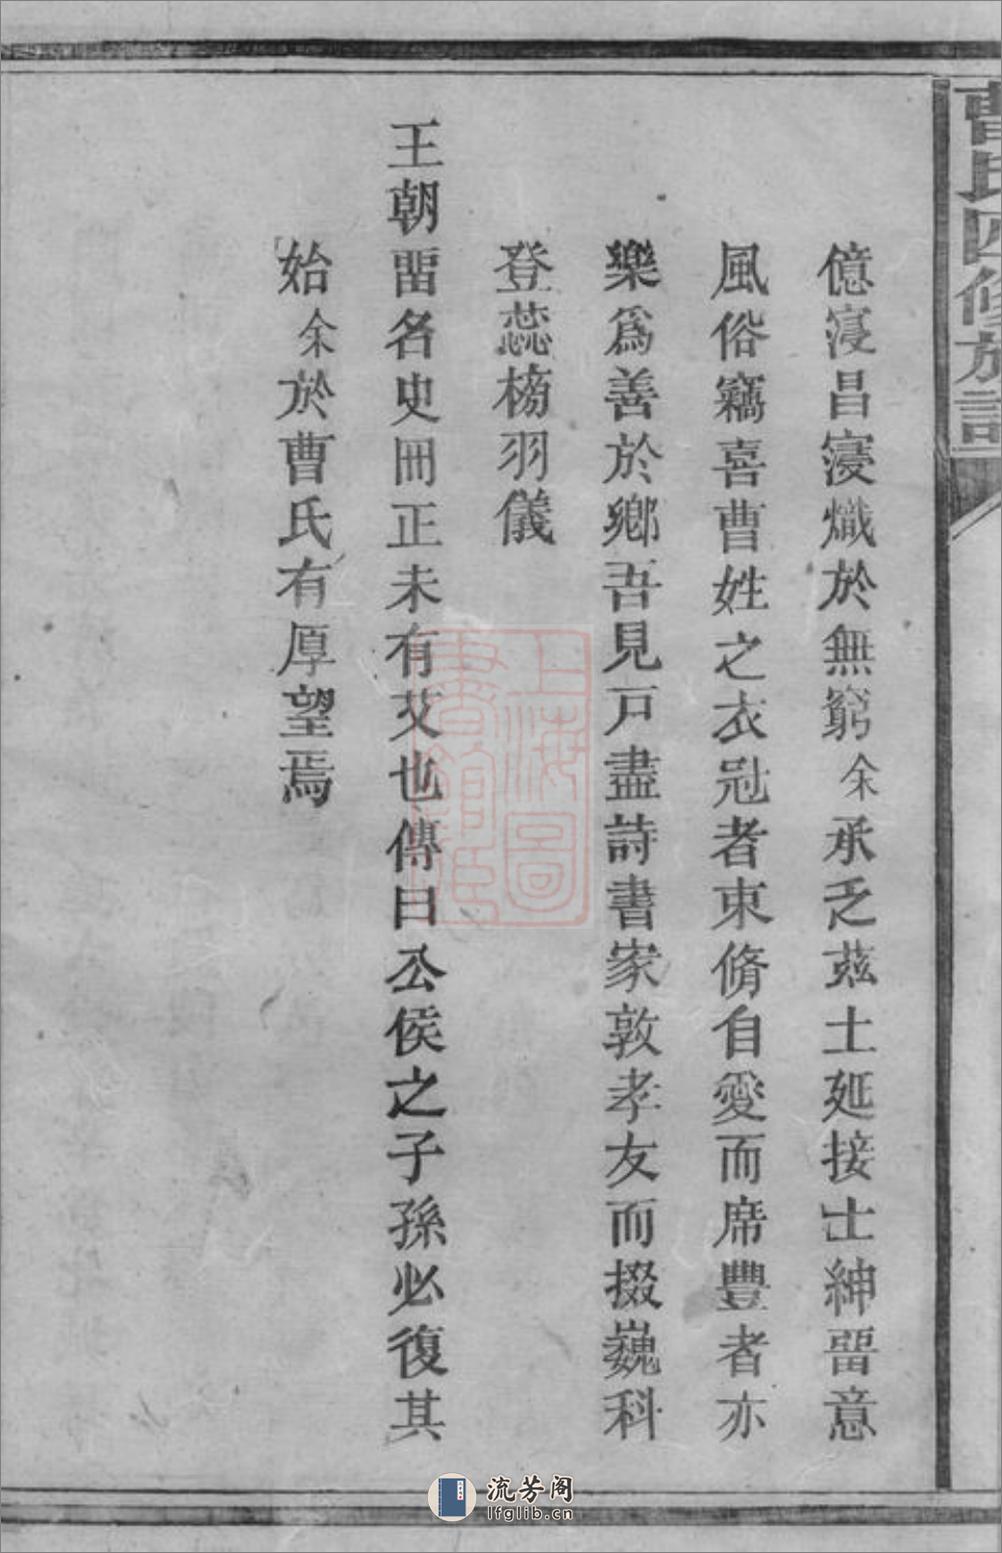 曹氏四修族譜
億寖昌寖熾於無窮余承乏茲土延接士紳畱意
風俗竊喜曹姓之衣冠者束脩自愛而席豐者亦
樂爲善於鄉吾見戸盡詩書家敦孝友而掇巍科
登蕊榜羽儀
王朝畱名史冊正未有艾也傳曰公侯之子孫必復其
始余於曹氏有厚望焉
上海圖
書館藏
流芳阁
lfglib.cn